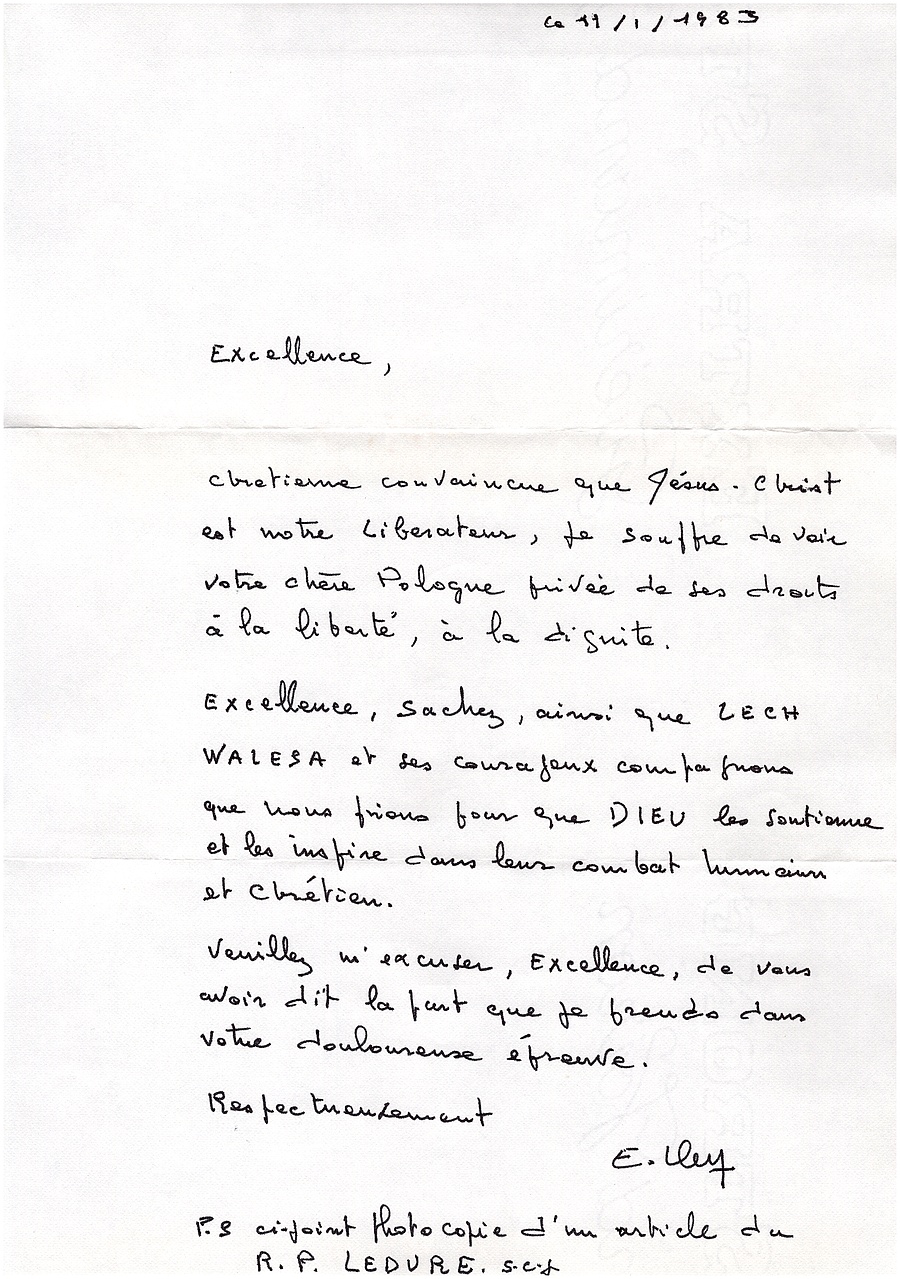 Le 11/1/1983
Excellence,
chretienne convaincue que Jésus-Christ
est notre Liberateur, je souffre de voir
votre chère Pologne privée de ses droits
à la liberté, à la dignite.
Excellence, sachez, ainsi que LECH
WALESA et ses courageux compagnons
que nous prions pour que DIEU les soutienne
et les inspire dans leur combat humain
et chrétien.
Veuillez m'excuser, Excellence, de vous
avoir dit la part que je prends dans
votre douloureuse épreuve.
Respectueusement
E.
P.S ci-joint Photocopie d'un article du
R. P. LEDURE. s.c.j